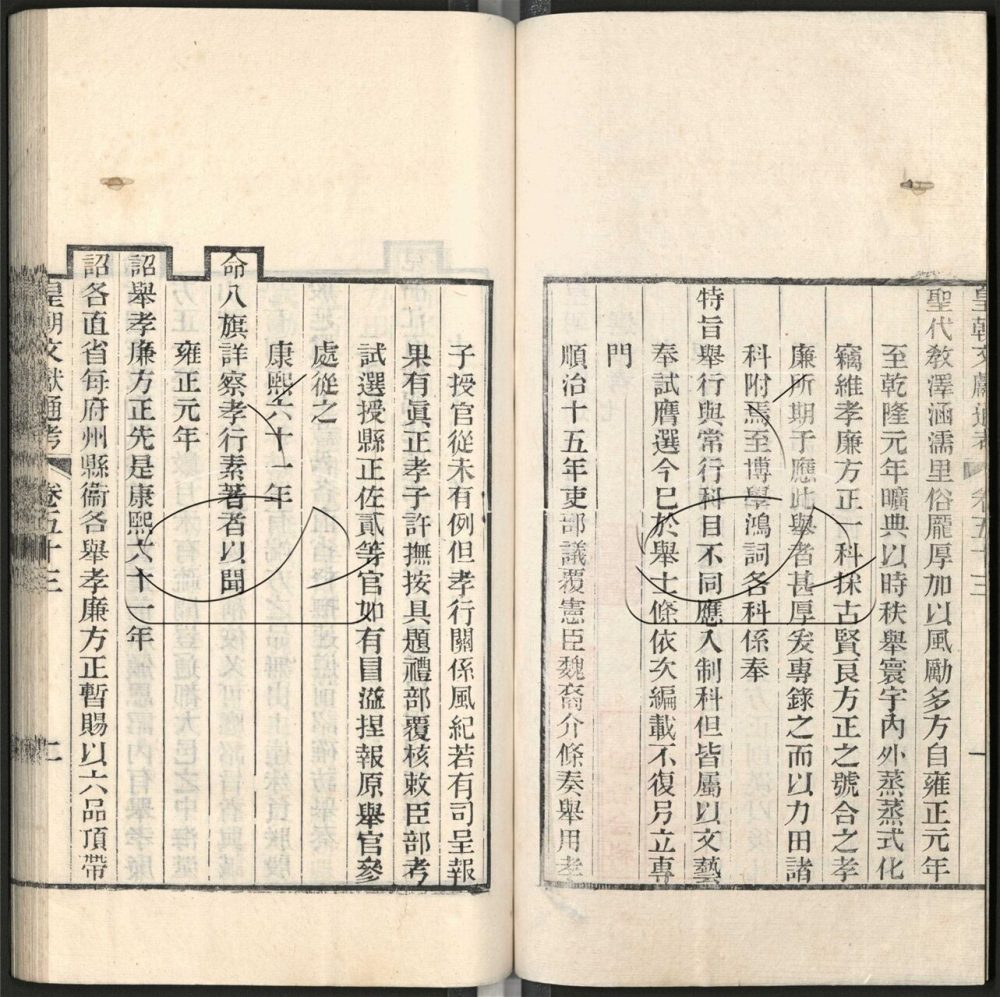 皇朝文獻通考 卷五十三 一
聖代敎澤涵濡里俗龎厚加以風勵多方自雍正元年
至乾隆元年曠典以時秩舉寰宇內外蒸蒸式化
竊維孝廉方正一科採古賢良方正之號合之孝
廉所期于應此舉者甚厚爰專錄之而以力田諸
科附焉至博學鴻詞各科係奉
特旨舉行與常行科目不同應入制科但皆屬以文藝
奉試膺選今已於舉士條依次編載不復另立專
門
順治十五年吏部議覆憲臣魏裔介條奏舉用孝
子授官從未有例但孝行關係風紀若有司呈報
果有眞正孝子許撫按具題禮部覆核敕臣部考
試選授縣正佐貳等官如有冒濫捏報原舉官參
處從之
康熙六十一年
命八旗詳察孝行素著者以聞
雍正元年
詔舉孝廉方正先是康熙六十一年
詔各直省每府州縣衞各舉孝廉方正暫賜以六品頂帶
皇朝文獻通考 卷五十三 二